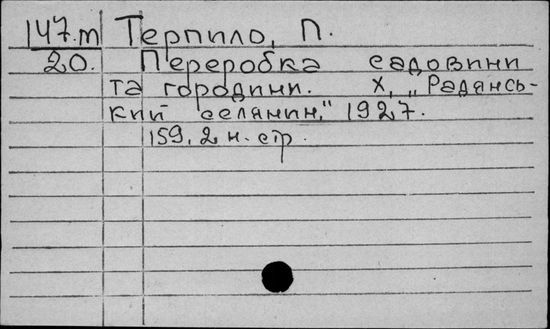 147.m Терпило, П.
20. Переробка садовини
та городини. Х, „Радянсь-
кий селянин," 1927.
159, 2 н. стр.